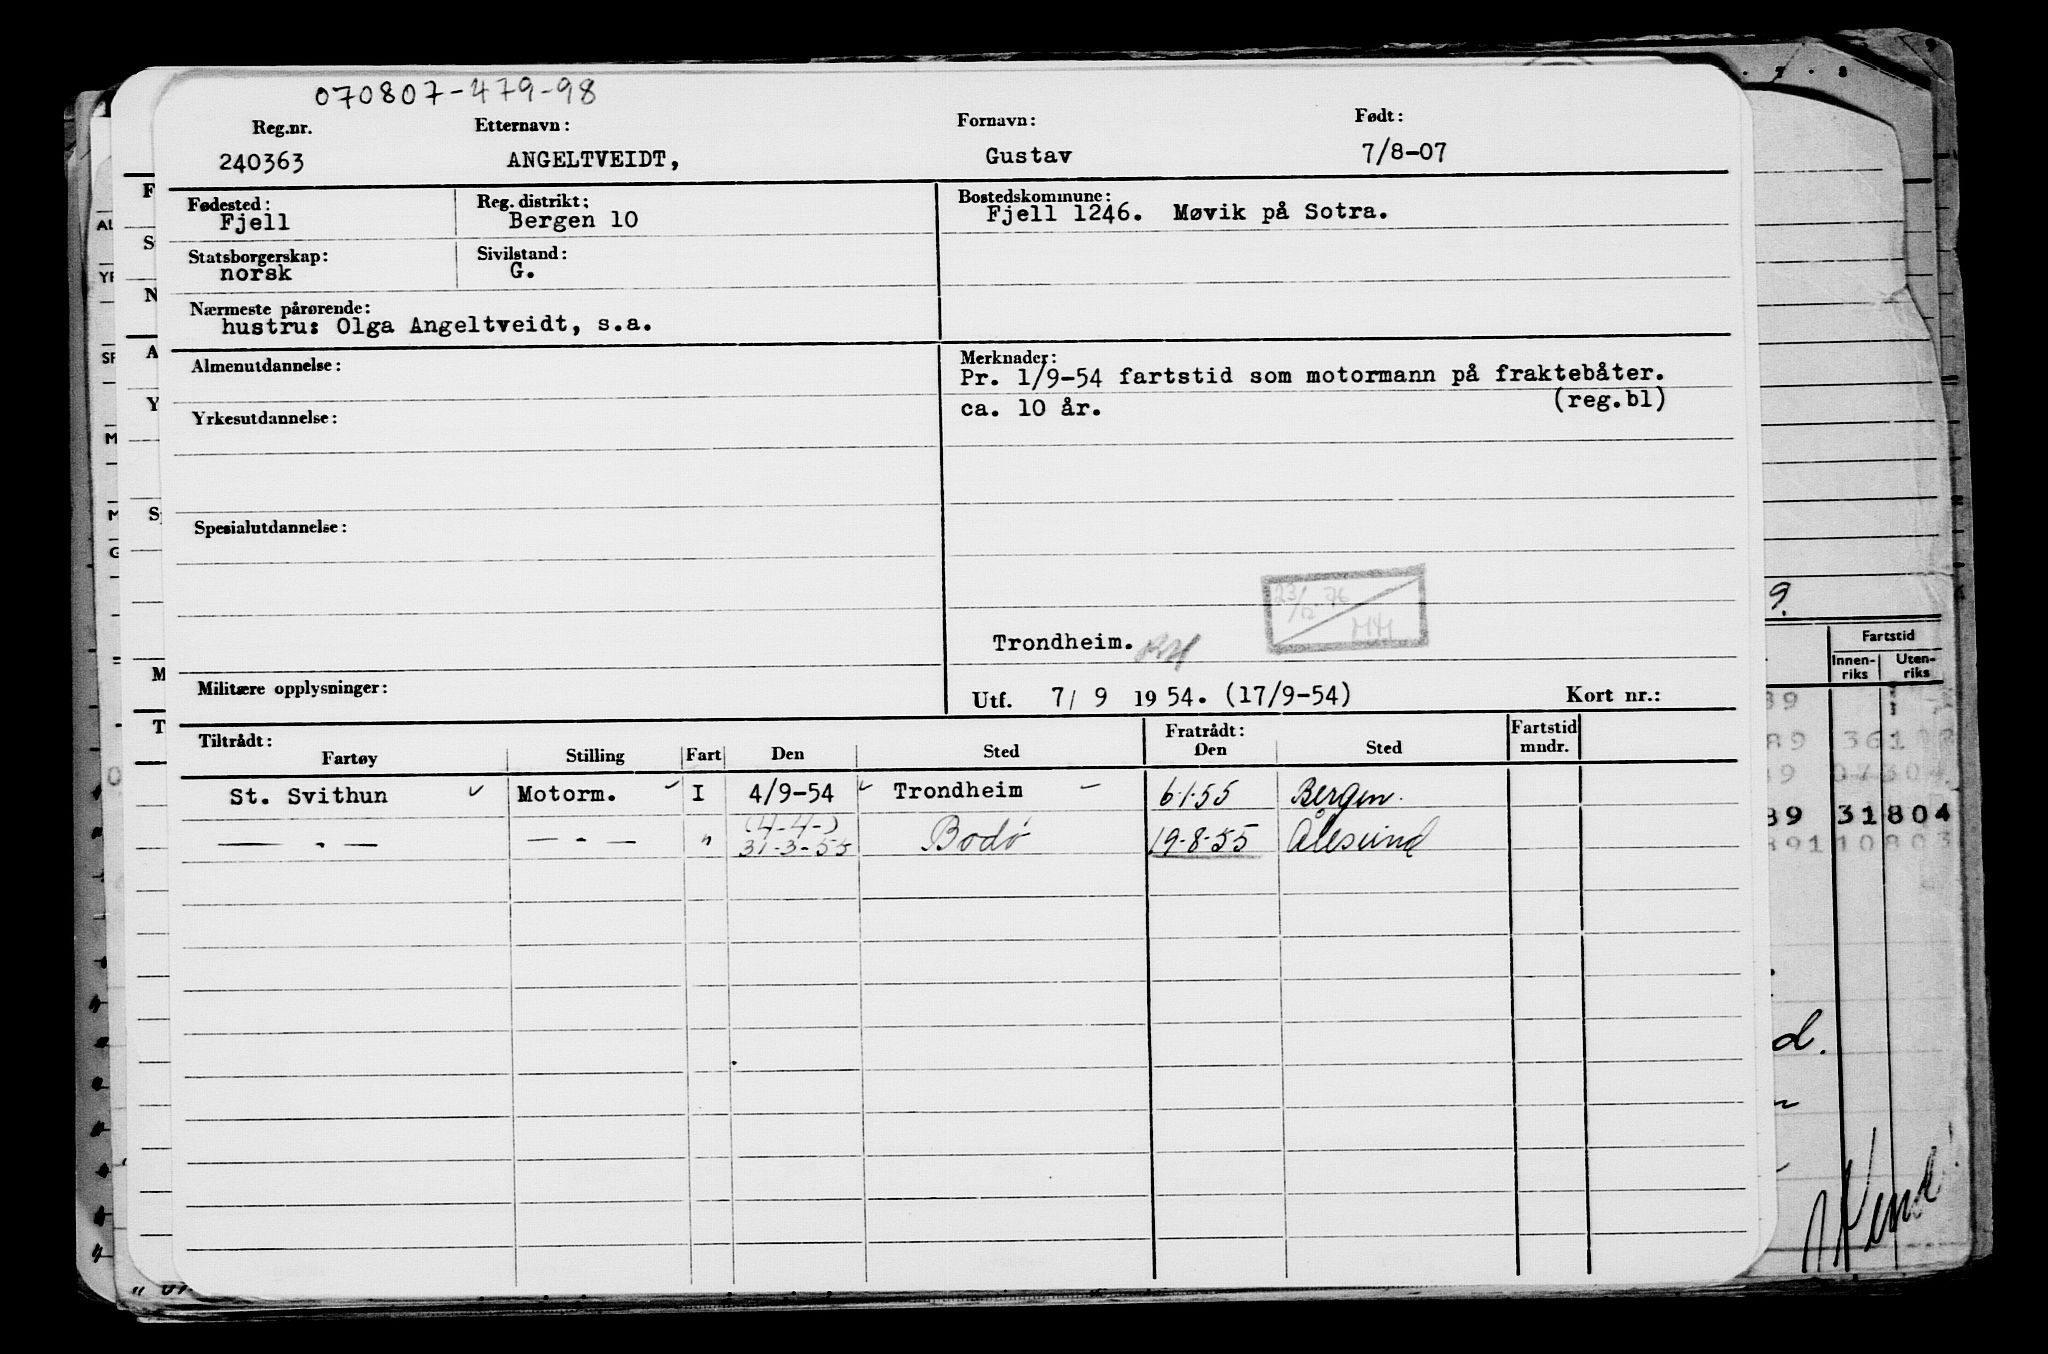 070807-479-98
Reg.nr. Etternavn: Fornavn: Født:
240363 ANGELTVEIDT, Gustav 7/8-07
Fødested: Reg. distrikt: Bostedskommune:
Fjell Bergen 10 Fjell 1246. Møvik på Sotra.
Statsborgerskap: Sivilstand:
norsk G.
Nærmeste pårørende:
hustru: Olga Angeltveidt, s.a.
Almenutdannelse: Merknader:
Pr. 1/9-54 fartstid som motormann på fraktebåter.
ca. 10 år. (reg.bl)
Yrkesutdannelse:
Spesialutdannelse:
23/12 76
MM
Trondheim.
Militære opplysninger:
Utf. 7/ 9 1954. (17/9-54) Kort nr.:
Tiltrådt: Fratrådt: Fartstid
Fartøy Stilling Fart Den Sted Den Sted mndr.
St. Svithun Motorm. I 4/9-54 Trondheim 6-1-55 Bergen.
(4-4-)
— - — — - — " 31-3-55 Bodø 19-8-55 Ålesund
9.
Fartstid
Innen-riks Uten-riks
89
89 36
89 07304
89 31804
891 10803
d.